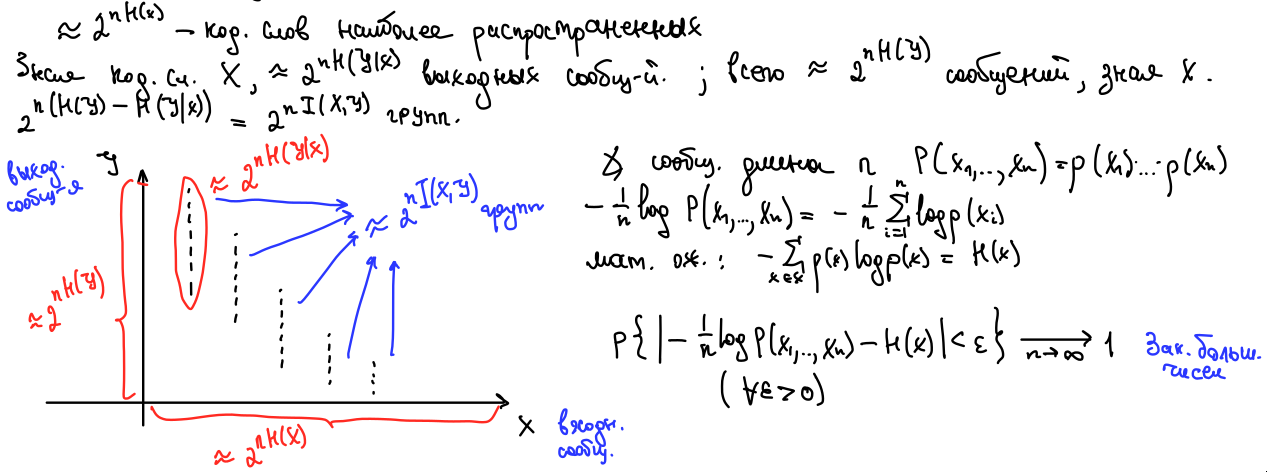 ≈ 2^{nH(X)} – код. слов наиболее распространенных
Зная код. сл. X, ≈ 2^{nH(Y|X)} выходных сообщ-й. ; всего ≈ 2^{nH(Y)} сообщений, зная X.
2^{n(H(Y) – H(Y|X))} = 2^{nI(X,Y)} групп.
выход.
сообщ-я
Y
≈ 2^{nH(Y|X)}
≈ 2^{nI(X,Y)} групп
≈ 2^{nH(Y)}
≈ 2^{nH(X)}
X
входн.
сообщ.
сообщ. длина n P(x₁,..,xₙ) = p(x₁)·...·p(xₙ)
– 1/n log P(x₁,..,xₙ) = – 1/n ∑_{i=1}^{n} log p(xᵢ)
мат. ож.: – ∑_{x∈X} p(x) log p(x) = H(X)
P{ | – 1/n log P(x₁,..,xₙ) – H(X) | < ε } →_{n→∞} 1
(∀ε > 0)
Зак. больш.
чисел